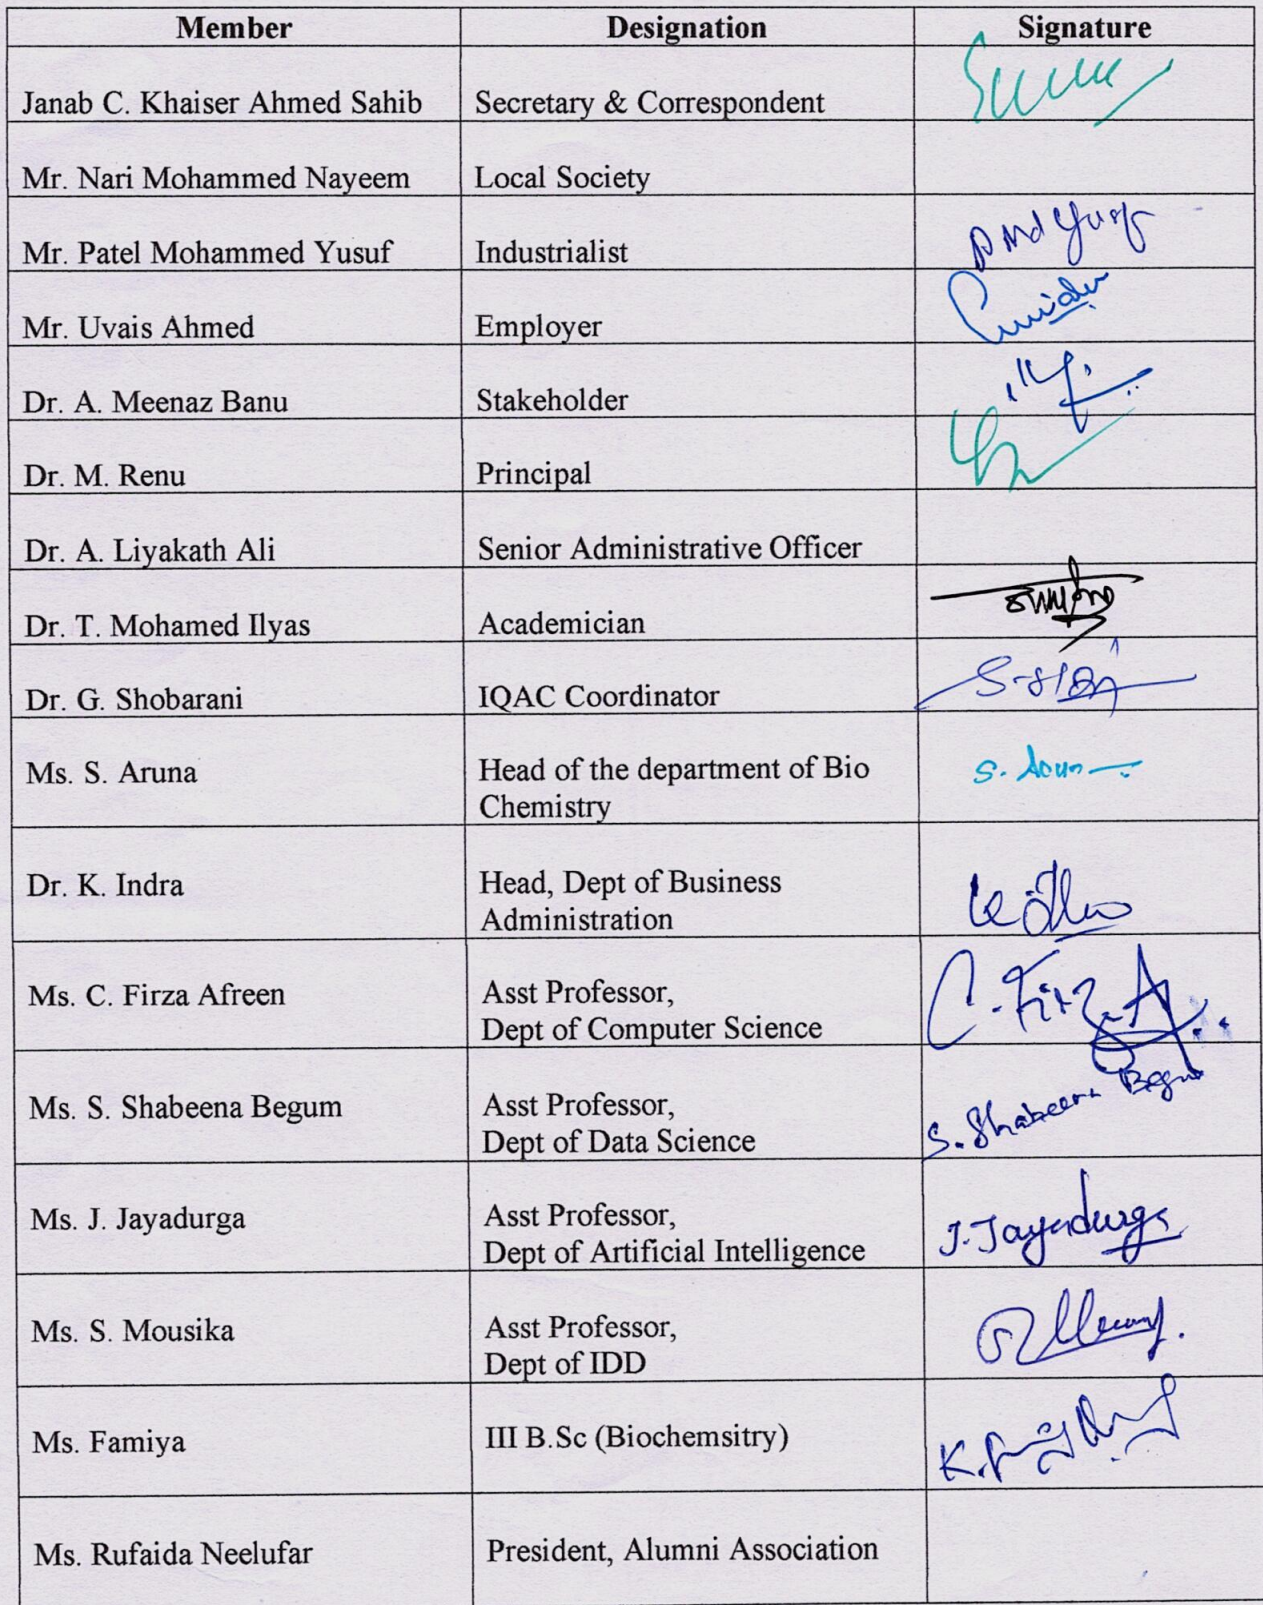 Member Designation Signature
Janab C. Khaiser Ahmed Sahib Secretary & Correspondent
Mr. Nari Mohammed Nayeem Local Society
Mr. Patel Mohammed Yusuf Industrialist P Md Yusf
Mr. Uvais Ahmed Employer
Dr. A. Meenaz Banu Stakeholder
Dr. M. Renu Principal
Dr. A. Liyakath Ali Senior Administrative Officer
Dr. T. Mohamed Ilyas Academician
Dr. G. Shobarani IQAC Coordinator
Ms. S. Aruna Head of the department of Bio
Chemistry
S. Arun
Dr. K. Indra Head, Dept of Business
Administration
Ms. C. Firza Afreen Asst Professor,
Dept of Computer Science
C. Firza A
Ms. S. Shabeena Begum Asst Professor,
Dept of Data Science
S. Shabeena Begum
Ms. J. Jayadurga Asst Professor,
Dept of Artificial Intelligence
J. Jayadurga
Ms. S. Mousika Asst Professor,
Dept of IDD
Ms. Famiya III B.Sc (Biochemsitry)
Ms. Rufaida Neelufar President, Alumni Association